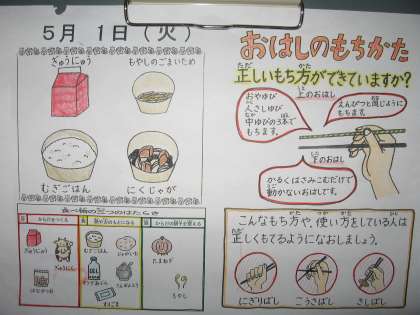 5月 1日(火)
ぎゅうにゅう
もやしのごまいため
むぎごはん
にくじゃが
食べ物の三つのはたらき
からだをつくる
ぎゅうにゅう
ぎゅうにく
むぎごはん
じゃがいも
さとう
たまねぎ
もやし
おはしのもちかた
ただ かた
正しいもち方ができていますか?
うえ
上のおはし
おやゆび
人さしゆび
中ゆびの3本で
もちます。
えんぴつと同じように
もちます。
下のおはし
かるくはさみこむだけで
動かないおはしです。
こんなもち方や、使い方をしている人は
正しくもてるようになおしましょう。
にぎりばし
こうさばし
さしばし